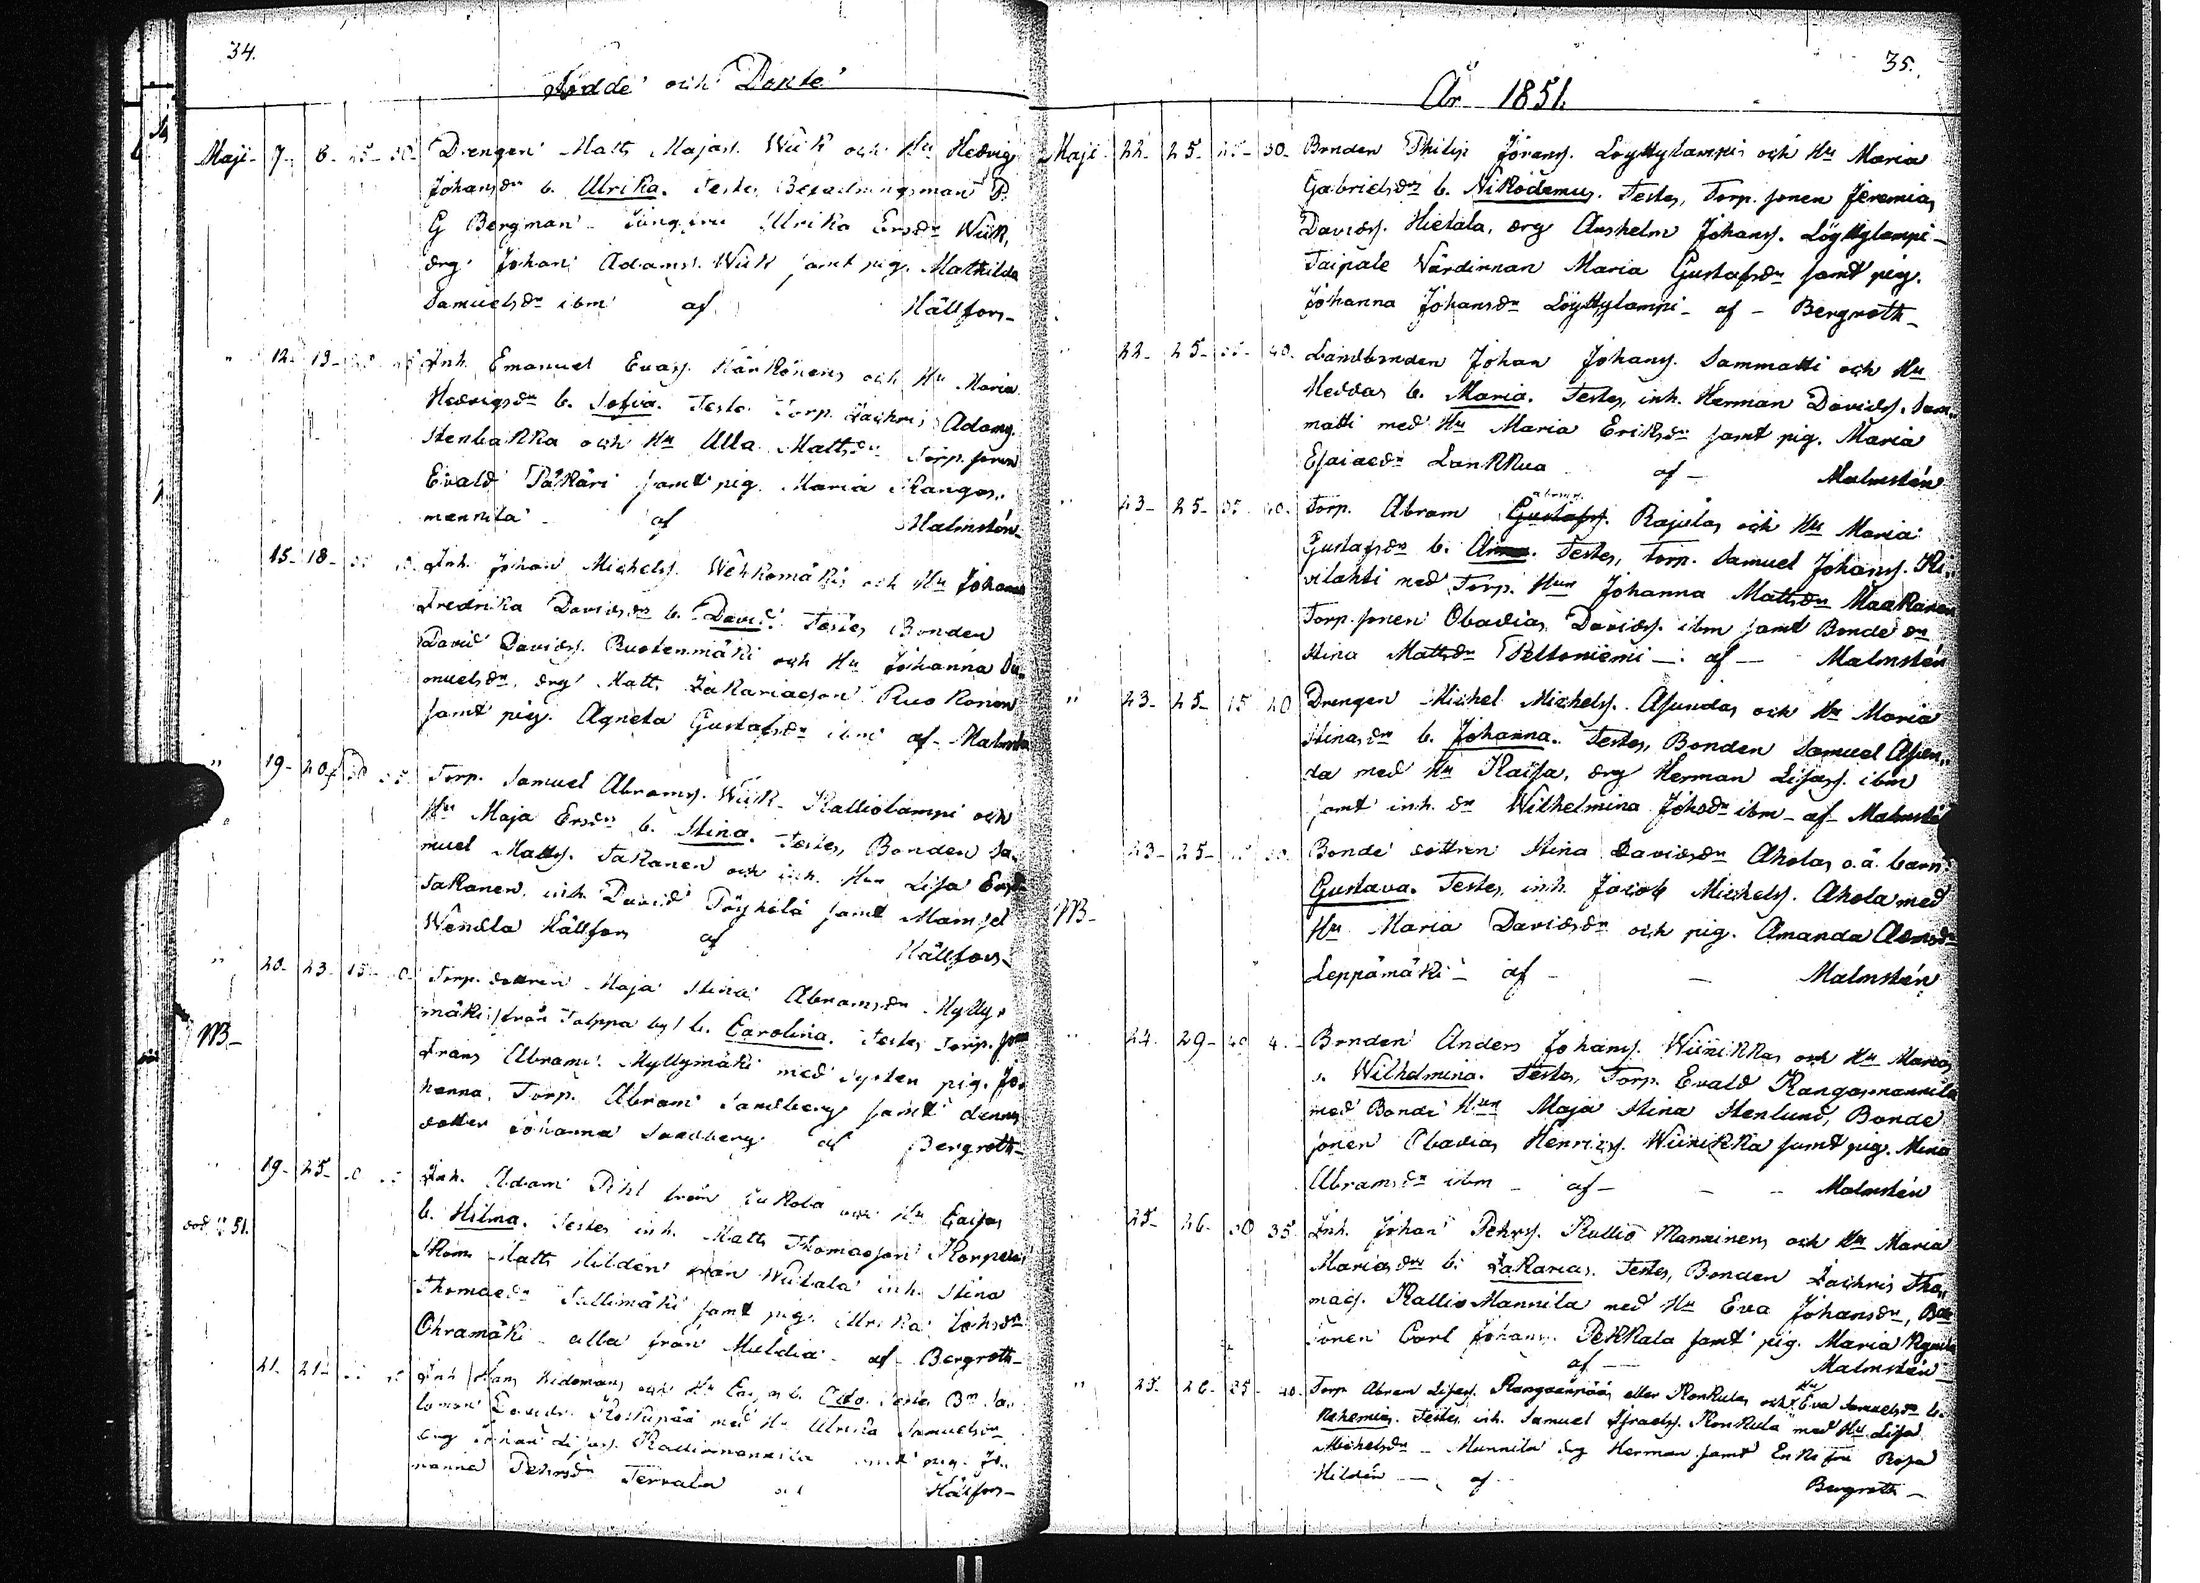 34.
Födde och Döpte
Maji 7. 8. 25 30. Drengen Matts Majas. Wiik och Hu Hedvig
Johansdr b. Ulrika. Testes, Befallningsman P.
G Bergman Jungfru Ulrika Ersdr Wiik,
drg Johan Adams. Wiik samt pig. Mathilda
Samuelsdr ibm af Hällfors
" 12. 13. Inh. Emanuel Evas. Kärkönens och Hu Maria
Hedvigsdr b. Sofia. Testes Torp. Zachris Adams.
Stenbakka och Hu Ulla Mattsdr Torp. sonen
Evald Päkäri samt pig. Maria Kangas„
mannila af Malmstén
15. 18. Inh. Johan Michelss. Wehkomäkis och Hu Johanna
Fredrika Davidsdr b. David. Testes Bonden
David Davids. Ruokenmäki och Hu Johanna Sa„
muelsdr, drg Matts Zakariaeson Ruokonen
samt pig. Agneta Gustafsdr ibm af Malmstén
" 19. 20. Torp. Samuel Abrams. Wiik Kalliolampi och
Hu Maja Ersdr b. Stina. Testes, Bonden Sa„
muel Matts. Takanen och inh. Hu Lisa Ersdr
Takanen, inh. David Pöyhölä samt Mamsel
Wendla Hällfors af Hällfors
" 20. 23. 15 Torp. dottren Maja Stina Abramsdr Mylly„
NB mäki från Talppa by b. Carolina. Testes Torp. son
Frans Abrams. Myllymäki med systen pig. Jo„
hanna, Torp. Abram Sandberg samt dennes
dotter Johanna Sandberg af Bergroth
" 19. 25. Inh. Adam Pihl från Eukola och Hu Caisas
död 51. b. Hilma. Testes inh. Matts Thomasson Korpela
Skom. Matts Hildén från Wiitala inh. Stina
Thomasdr Sallimäki samt pig. Ulrika Johsdr
Ohramäki alla från Multia af Bergroth
21. 21. Inh. Hans Widemans och Hu Cajsas b. Otto. Testes Bn Sa„
lomon Davids. Koskipää med Hu Ulrika Samuelsdr
drg Johan Lisas. Kalliomannila samt pig. Jo„
hanna Petersdr Tervala af Hälfors
35.
År 1851.
Maji 22. 25. 25 30. Bonden Philip Jörans. Löyttylampis och Hu Maria
Gabrielsdr b. Nikodemus. Testes, Torp. sonen Jeremias
Davids. Hietala, drg Anshelm Johans. Löyttylampi
Taipale Värdinnan Maria Gustafsdr samt pig.
Johanna Johansdr Löyttylampi af Bergroth
" 22. 25. 35 40. Landbonden Johan Johans. Sammatti och Hu
Heddas b. Maria. Testes, inh. Herman Davids. Sam„
matti med Hu Maria Eriksdr samt pig. Maria
Esaiaedr Lankkua af Malmstén
" 23. 25. 35 40. Torp. Abram Gustafs. Abrams. Rajulas och Hu Maria
Gustafsdr b. Anna. Testes, Torp. Samuel Johans. Ki„
vilahti med Torp. Hun Johanna Mattsdr Maakanen
Torp. sonen Obadias Davids. ibm samt Bonde dr
Stina Mattsdr Peltoniemi af Malmstén
" 23. 25. 15 20 Drengen Michel Michelss. Asundas och Hu Maria
Stinas dr b. Johanna. Testes, Bonden Samuel Asun„
da med Hu Kaisa, drg Herman Lisas. ibm
samt inh. dr Wilhelmina Johsdr ibm af Malmstén
23. 25. Bonde dottren Stina Davidsdr Aholas o.ä. barn
NB Gustava. Testes, inh. Jacob Michelss. Ahola med
Hu Maria Davidsdr och pig. Amanda Admsdr
Leppämäki af Malmstén
" 24. 29. 40 Bonden Anders Johans. Wiinikkas och Hu Marias
b. Wilhelmina. Testes, Torp. Evald Kangasmannila
med Bonde Hun Maja Stina Stenlund, Bonde
sonen Obadias Henrics. Wiinikka samt pig. Mina
Abramsdr ibm af Malmstén
" 25. 26. 30 35 Inh. Johan Pehrs. Kallio Manninens och Hu Maria
Marias dr b. Zakarias. Testes, Bonden Zachris Tho„
mas. Kallio Mannila med Hu Eva Johansdr, Bonde
sonen Carl Johans. Pekkala samt pig. Maria
af Malmstén
" 25. 26. 35 40. Torp Abram Lisas. Kangaanpääs eller Konkulas och Hu Eva Samuelsdr b.
Nehemias. Testes, inh. Samuel Israels. Konkula med Hu Lisa
Michelsdr Mannila drg Herman samt Enkefru Rosa
Hildén af Bergroth